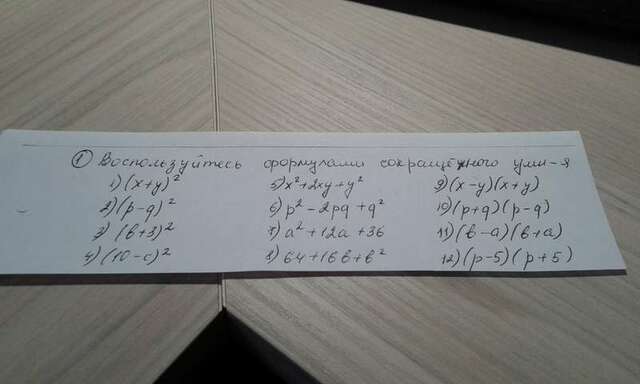 ① Воспользуйтесь формулами сокращённого умн-я
1) (x+y)² 5) x²+2xy+y² 9) (x-y)(x+y)
2) (p-q)² 6) p²-2pq+q² 10) (p+q)(p-q)
3) (b+3)² 7) a²+12a+36 11) (b-a)(b+a)
4) (10-c)² 8) 64+16b+b² 12) (p-5)(p+5)